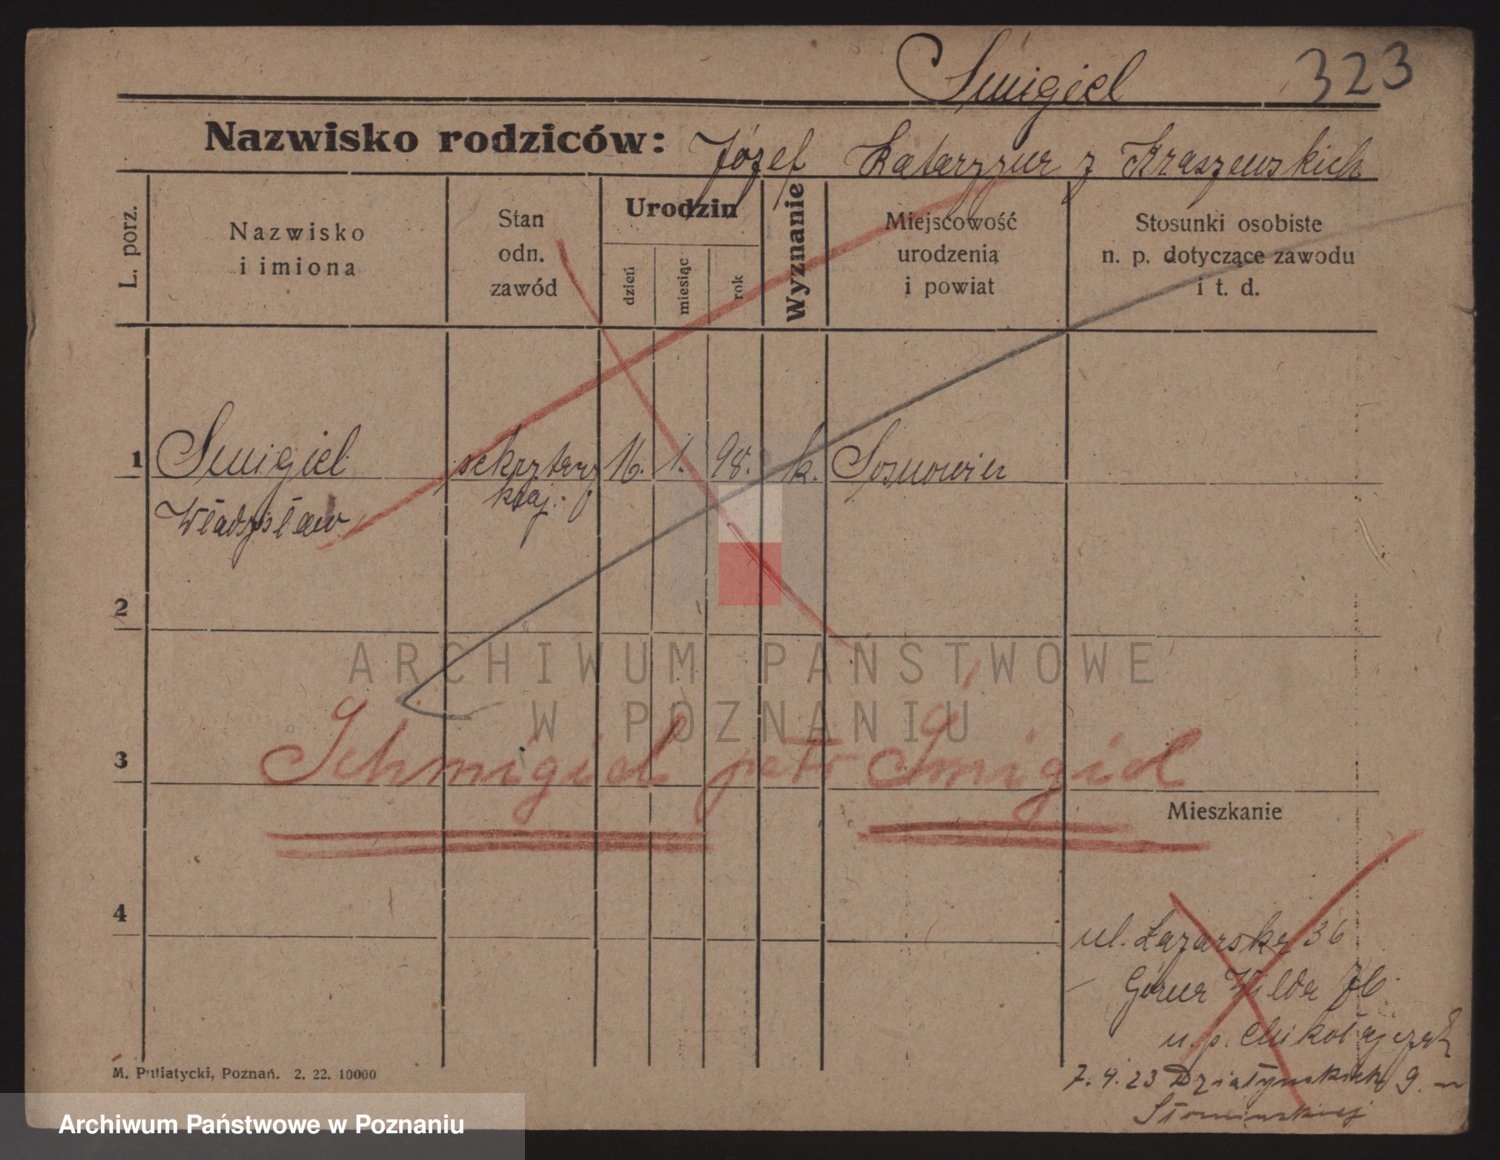 Smigiel 323
Nazwisko rodziców: Józef Katarzyna z Kraszewskich
L. porz.
Nazwisko
i imiona
Stan
odn.
zawód
Urodzin
dzień
miesiąc
rok
Wyznanie
Miejscowość
urodzenia
i powiat
Stosunki osobiste
n. p. dotyczące zawodu
i t. d.
1 Smigiel sekretarz 16. 1. 98. k. Sosnowiec
Władysław
2
ARCHIWUM PAŃSTWOWE
W POZNANIU
3 Schmigiel patr Śmigiel
Mieszkanie
4
ul. Łazarska 36
Górna Wilda 76
u. p. Mikołajczak
7.4.23 Działyńskich 9
M. Putiatycki, Poznań. 2. 22. 10000
Archiwum Państwowe w Poznaniu